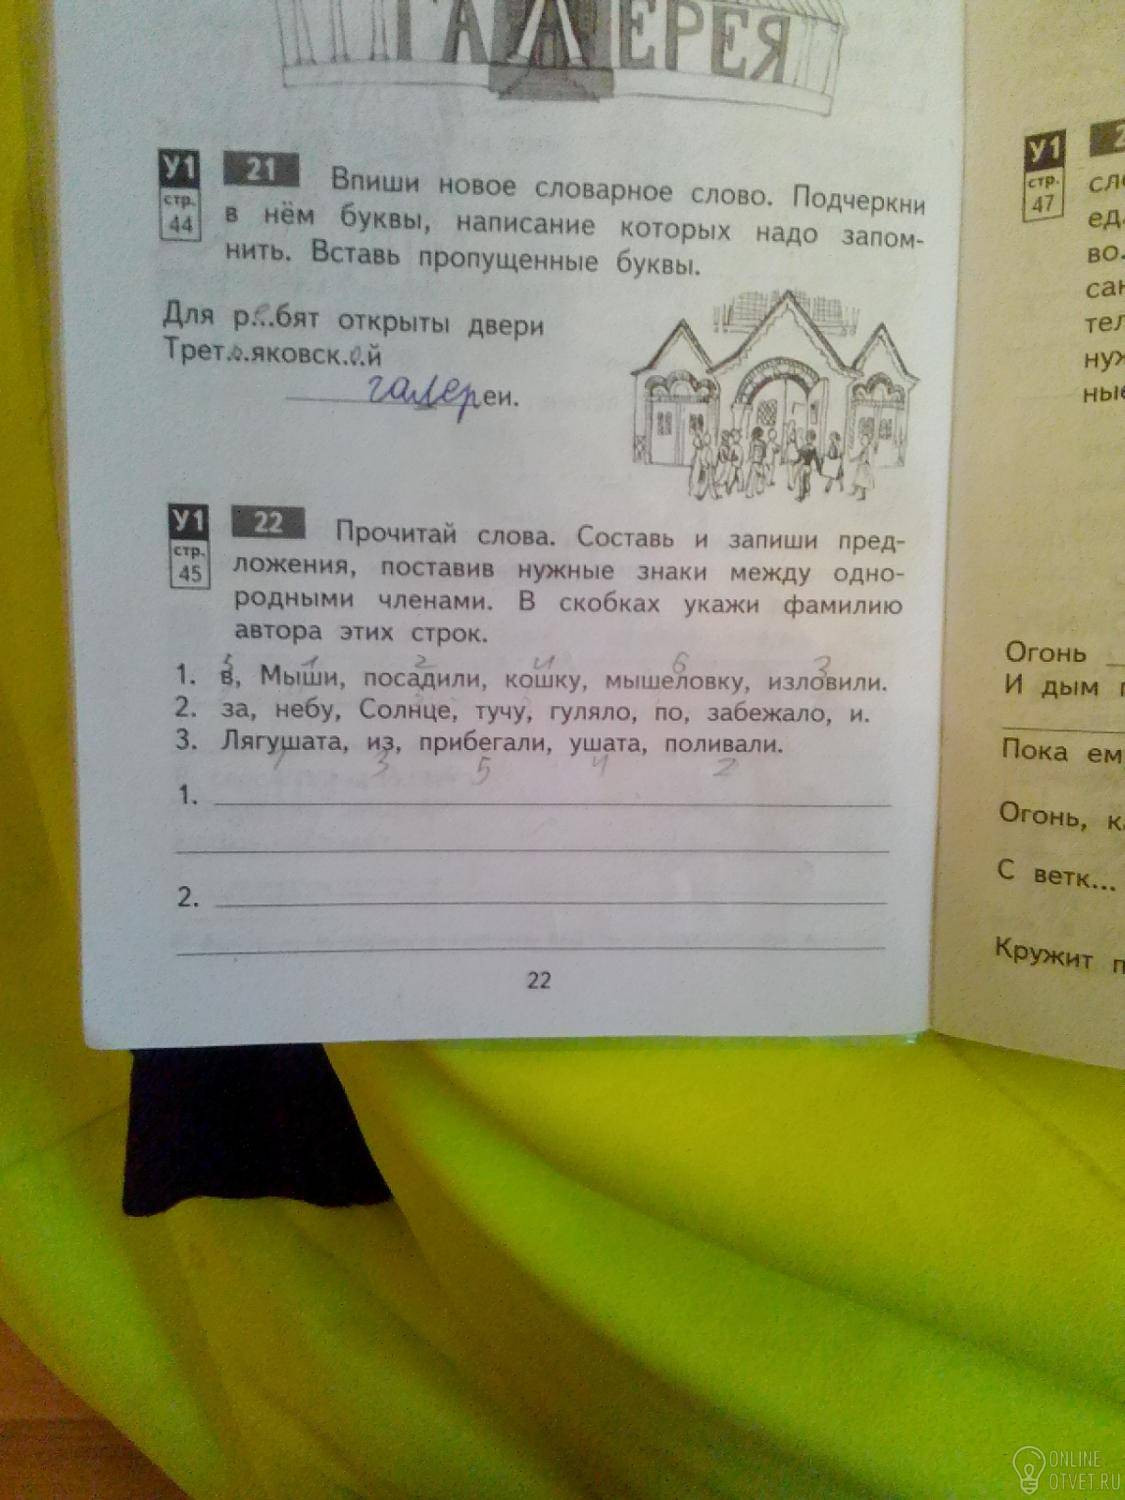 ГАЛЕРЕЯ
У1
стр.
44
21 Впиши новое словарное слово. Подчеркни
в нём буквы, написание которых надо запом-
нить. Вставь пропущенные буквы.
Для р е...бят открыты двери
Трет.ь.яковск.о.й
галереи.
У1
стр.
45
22 Прочитай слова. Составь и запиши пред-
ложения, поставив нужные знаки между одно-
родными членами. В скобках укажи фамилию
автора этих строк.
5 1 2 4 6 3
1. в, Мыши, посадили, кошку, мышеловку, изловили.
2. за, небу, Солнце, тучу, гуляло, по, забежало, и.
3. Лягушата, из, прибегали, ушата, поливали.
1 3 5 4 2
1.
2.
22
У1
стр.
47
2
сл
ед
во.
сан
тел
нуж
ные
Огонь
И дым
Пока ем
Огонь, к
С ветк...
Кружит п
ONLINE
OTVET.RU